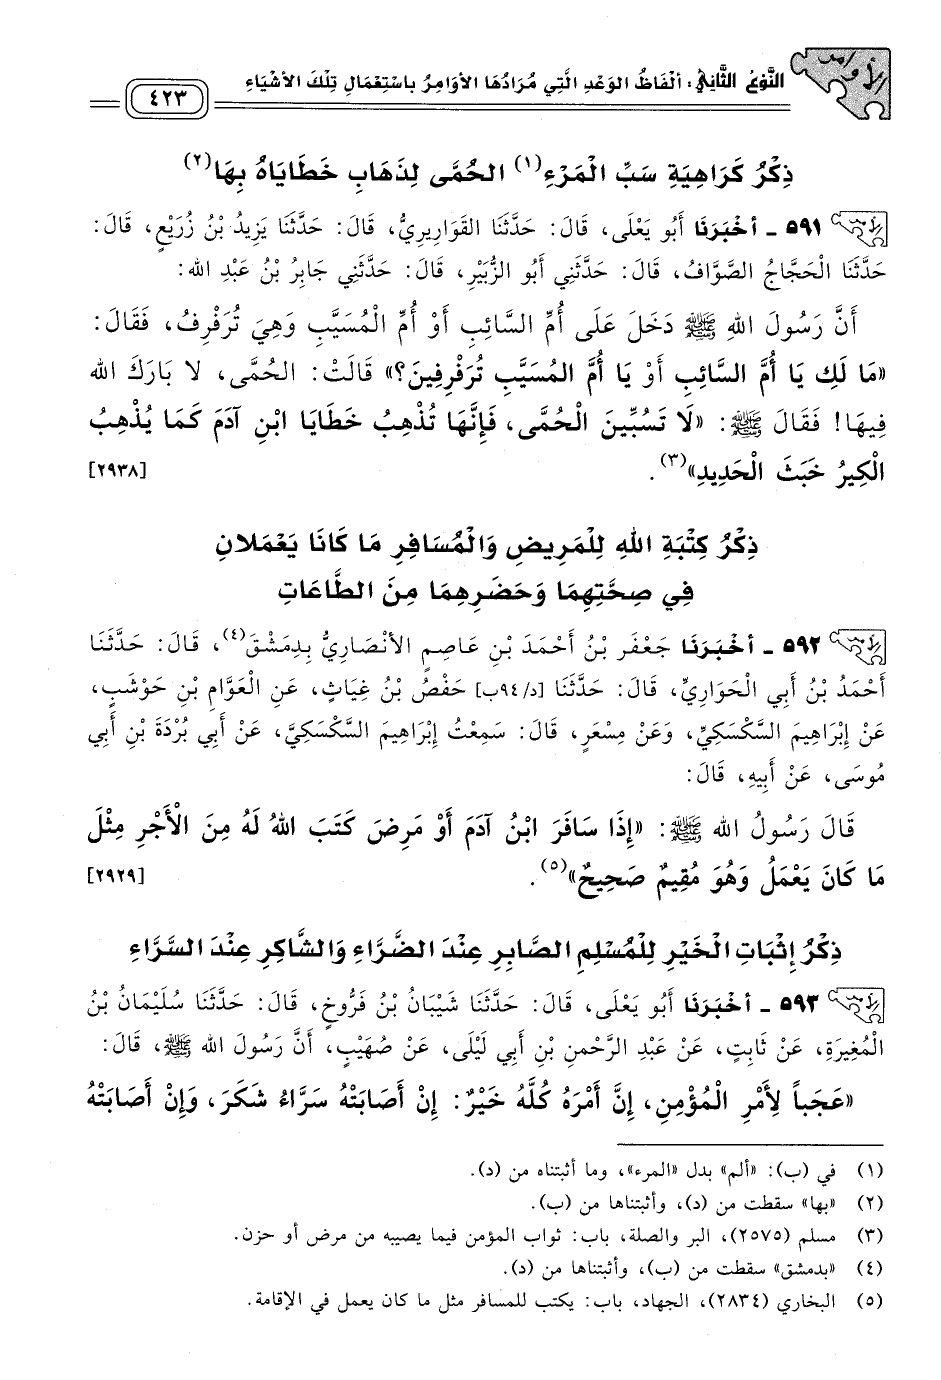 الأوامر
النَّوْعُ الثَّانِي: ألْفَاظُ الوَعْدِ الَّتِي مُرَادُهَا الأوَامِرُ بِاسْتِعْمَالِ تِلْكَ الأشْيَاءِ
٤٢٣
ذِكْرُ كَرَاهِيَةِ سَبِّ الْمَرْءِ(١) الحُمَّى لِذَهَابِ خَطَايَاهُ بِهَا(٢)
٥٩١ - أخْبَرَنَا أَبُو يَعْلَى، قَالَ: حَدَّثَنَا القَوَارِيرِيُّ، قَالَ: حَدَّثَنَا يَزِيدُ بْنُ زُرَيْعٍ، قَالَ:
حَدَّثَنَا الْحَجَّاجُ الصَّوَّافُ، قَالَ: حَدَّثَنِي أَبُو الزُّبَيْرِ، قَالَ: حَدَّثَنِي جَابِرُ بْنُ عَبْدِ الله:
أَنَّ رَسُولَ اللهِ ﷺ دَخَلَ عَلَى أُمِّ السَّائِبِ أَوْ أُمِّ الْمُسَيَّبِ وَهِيَ تُرَفْرِفُ، فَقَالَ:
«مَا لَكِ يَا أُمَّ السَّائِبِ أَوْ يَا أُمَّ المُسَيَّبِ تُرَفْرِفِينَ؟» قَالَتْ: الحُمَّى، لا بَارَكَ الله
فِيهَا! فَقَالَ ﷺ: «لَا تَسُبِّينَ الْحُمَّى، فَإِنَّهَا تُذْهِبُ خَطَايَا ابْنِ آدَمَ كَمَا يُذْهِبُ
الْكِيرُ خَبَثَ الْحَدِيدِ»(٣). [٢٩٣٨]
ذِكْرُ كِتْبَةِ اللهِ لِلْمَرِيضِ وَالْمُسَافِرِ مَا كَانَا يَعْمَلانِ
فِي صِحَّتِهِمَا وَحَضَرِهِمَا مِنَ الطَّاعَاتِ
٥٩٢ - أخْبَرَنَا جَعْفَر بْنُ أَحْمَدَ بْنِ عَاصِمٍ الأنْصَارِيُّ بِدِمَشْقَ(٤)، قَالَ: حَدَّثَنَا
أَحْمَدُ بْنُ أَبِي الْحَوَارِيِّ، قَالَ: حَدَّثَنَا [د/٩٤ب] حَفْصُ بْنُ غِيَاثٍ، عَنِ العَوَّامِ بْنِ حَوْشَبٍ،
عَنْ إِبْرَاهِيمَ السَّكْسَكِيِّ، وَعَنْ مِسْعَرٍ، قَالَ: سَمِعْتُ إِبْرَاهِيمَ السَّكْسَكِيَّ، عَنْ أَبِي بُرْدَةَ بْنِ أَبِي
مُوسَى، عَنْ أَبِيهِ، قَالَ:
قَالَ رَسُولُ الله ﷺ: «إِذَا سَافَرَ ابْنُ آدَمَ أَوْ مَرِضَ كَتَبَ اللهُ لَهُ مِنَ الْأَجْرِ مِثْلَ
مَا كَانَ يَعْمَلُ وَهُوَ مُقِيمٌ صَحِيحٌ»(٥). [٢٩٢٩]
ذِكْرُ إثْبَاتِ الْخَيْرِ لِلْمُسْلِمِ الصَّابِرِ عِنْدَ الضَّرَّاءِ وَالشَّاكِرِ عِنْدَ السَّرَّاءِ
٥٩٣ - أخْبَرَنَا أَبُو يَعْلَى، قَالَ: حَدَّثَنَا شَيْبَانُ بْنُ فَرُّوخٍ، قَالَ: حَدَّثَنَا سُلَيْمَانُ بْنُ
الْمُغِيرَةِ، عَنْ ثَابِتٍ، عَنْ عَبْدِ الرَّحْمنِ بْنِ أَبِي لَيْلَى، عَنْ صُهَيْبٍ، أَنَّ رَسُولَ الله ﷺ، قَالَ:
«عَجَباً لِأَمْرِ الْمُؤْمِنِ، إِنَّ أَمْرَهُ كُلَّهُ خَيْرٌ: إِنْ أَصَابَتْهُ سَرَّاءُ شَكَرَ، وَإِنْ أَصَابَتْهُ
(١) في (ب): «ألم» بدل «المرء»، وما أثبتناه من (د).
(٢) «بها» سقطت من (د)، وأثبتناها من (ب).
(٣) مسلم (٢٥٧٥)، البر والصلة، باب: ثواب المؤمن فيما يصيبه من مرض أو حزن.
(٤) «بدمشق» سقطت من (ب)، وأثبتناها من (د).
(٥) البخاري (٢٨٣٤)، الجهاد، باب: يكتب للمسافر مثل ما كان يعمل في الإقامة.